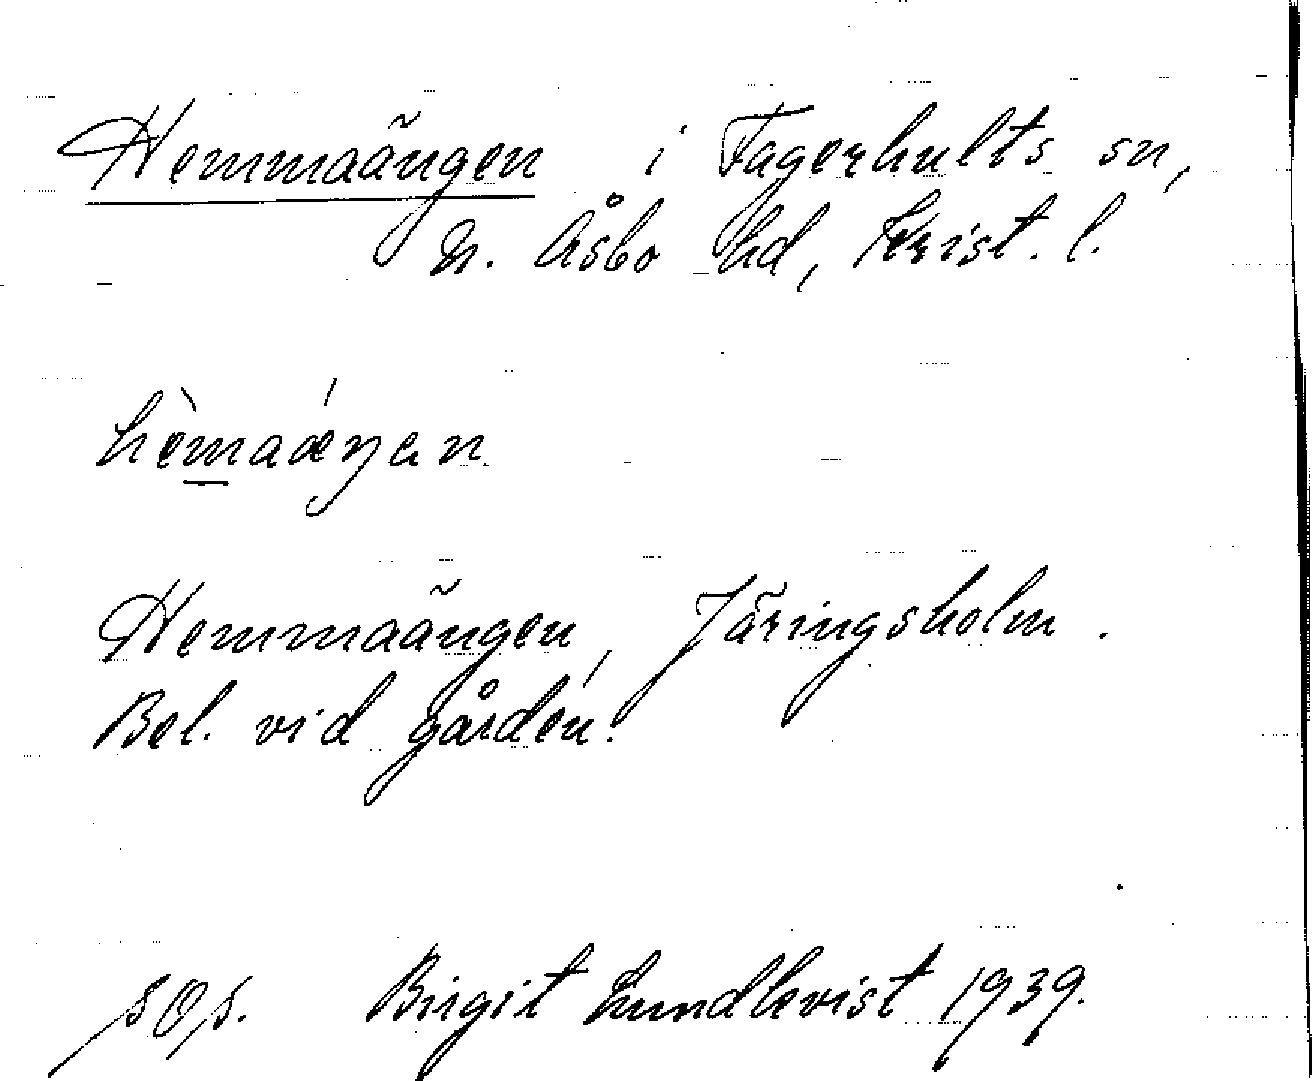 Hemmaängen i Fagerhults sn,
N. Åsbo hd, Krist. l.
hèmaǽŋan
Hemmaängen, Järingsholm.
Bel. vid gården.
Birgit Lundkvist 1939.